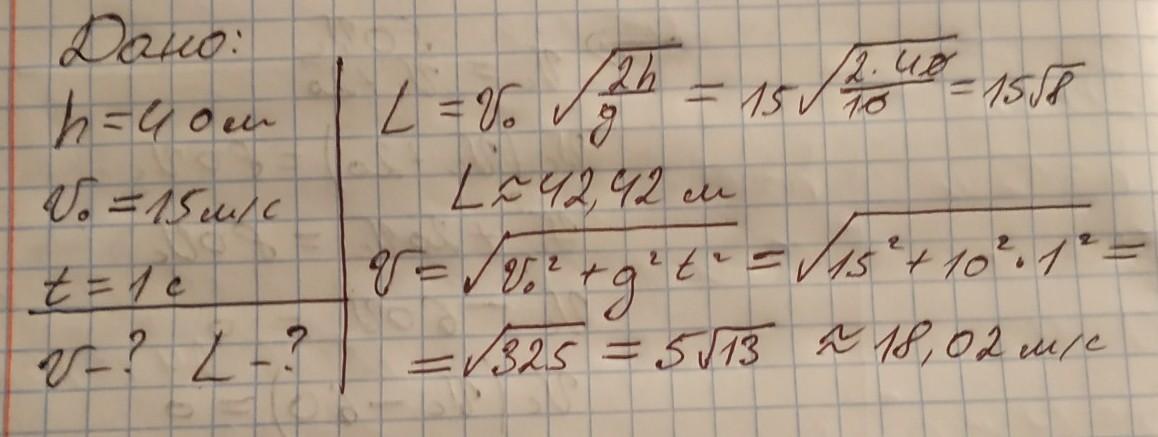 Дано:
h = 40 м
v₀ = 15 м/с
t = 1 с
v - ? L - ?
L = v₀ √(2h/g) = 15 √(2·40/10) = 15√8
L ≈ 42,42 м
v = √(v₀² + g² t²) = √(15² + 10² · 1²) =
= √325 = 5√13 ≈ 18,02 м/с